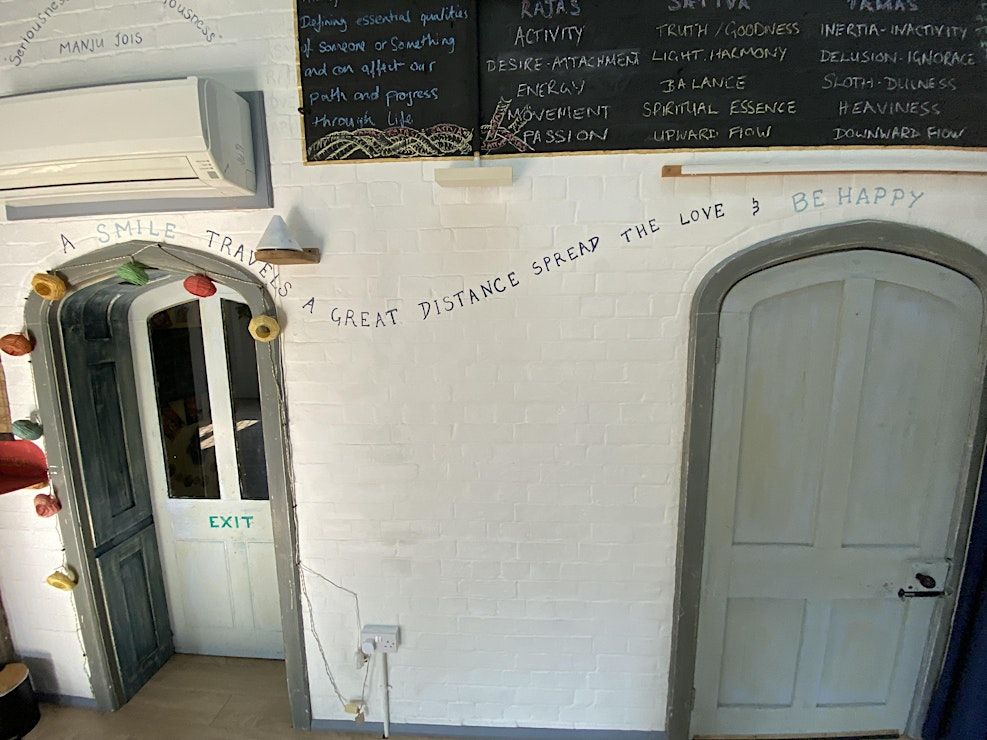 "Seriousness
iousness"
MANJU JOIS
Defining essential qualities
of someone or Something
and can affect our
path and progress
through life
RAJAS
ACTIVITY
DESIRE-ATTACHMENT
ENERGY
MOVEMENT
PASSION
SATTVA
TRUTH/GOODNESS
LIGHT, HARMONY
BALANCE
SPIRITUAL ESSENCE
UPWARD FLOW
TAMAS
INERTIA-INACTIVITY
DELUSION-IGNORACE
SLOTH-DULNESS
HEAVINESS
DOWNWARD FLOW
A SMILE TRAVELS A GREAT DISTANCE SPREAD THE LOVE & BE HAPPY
EXIT